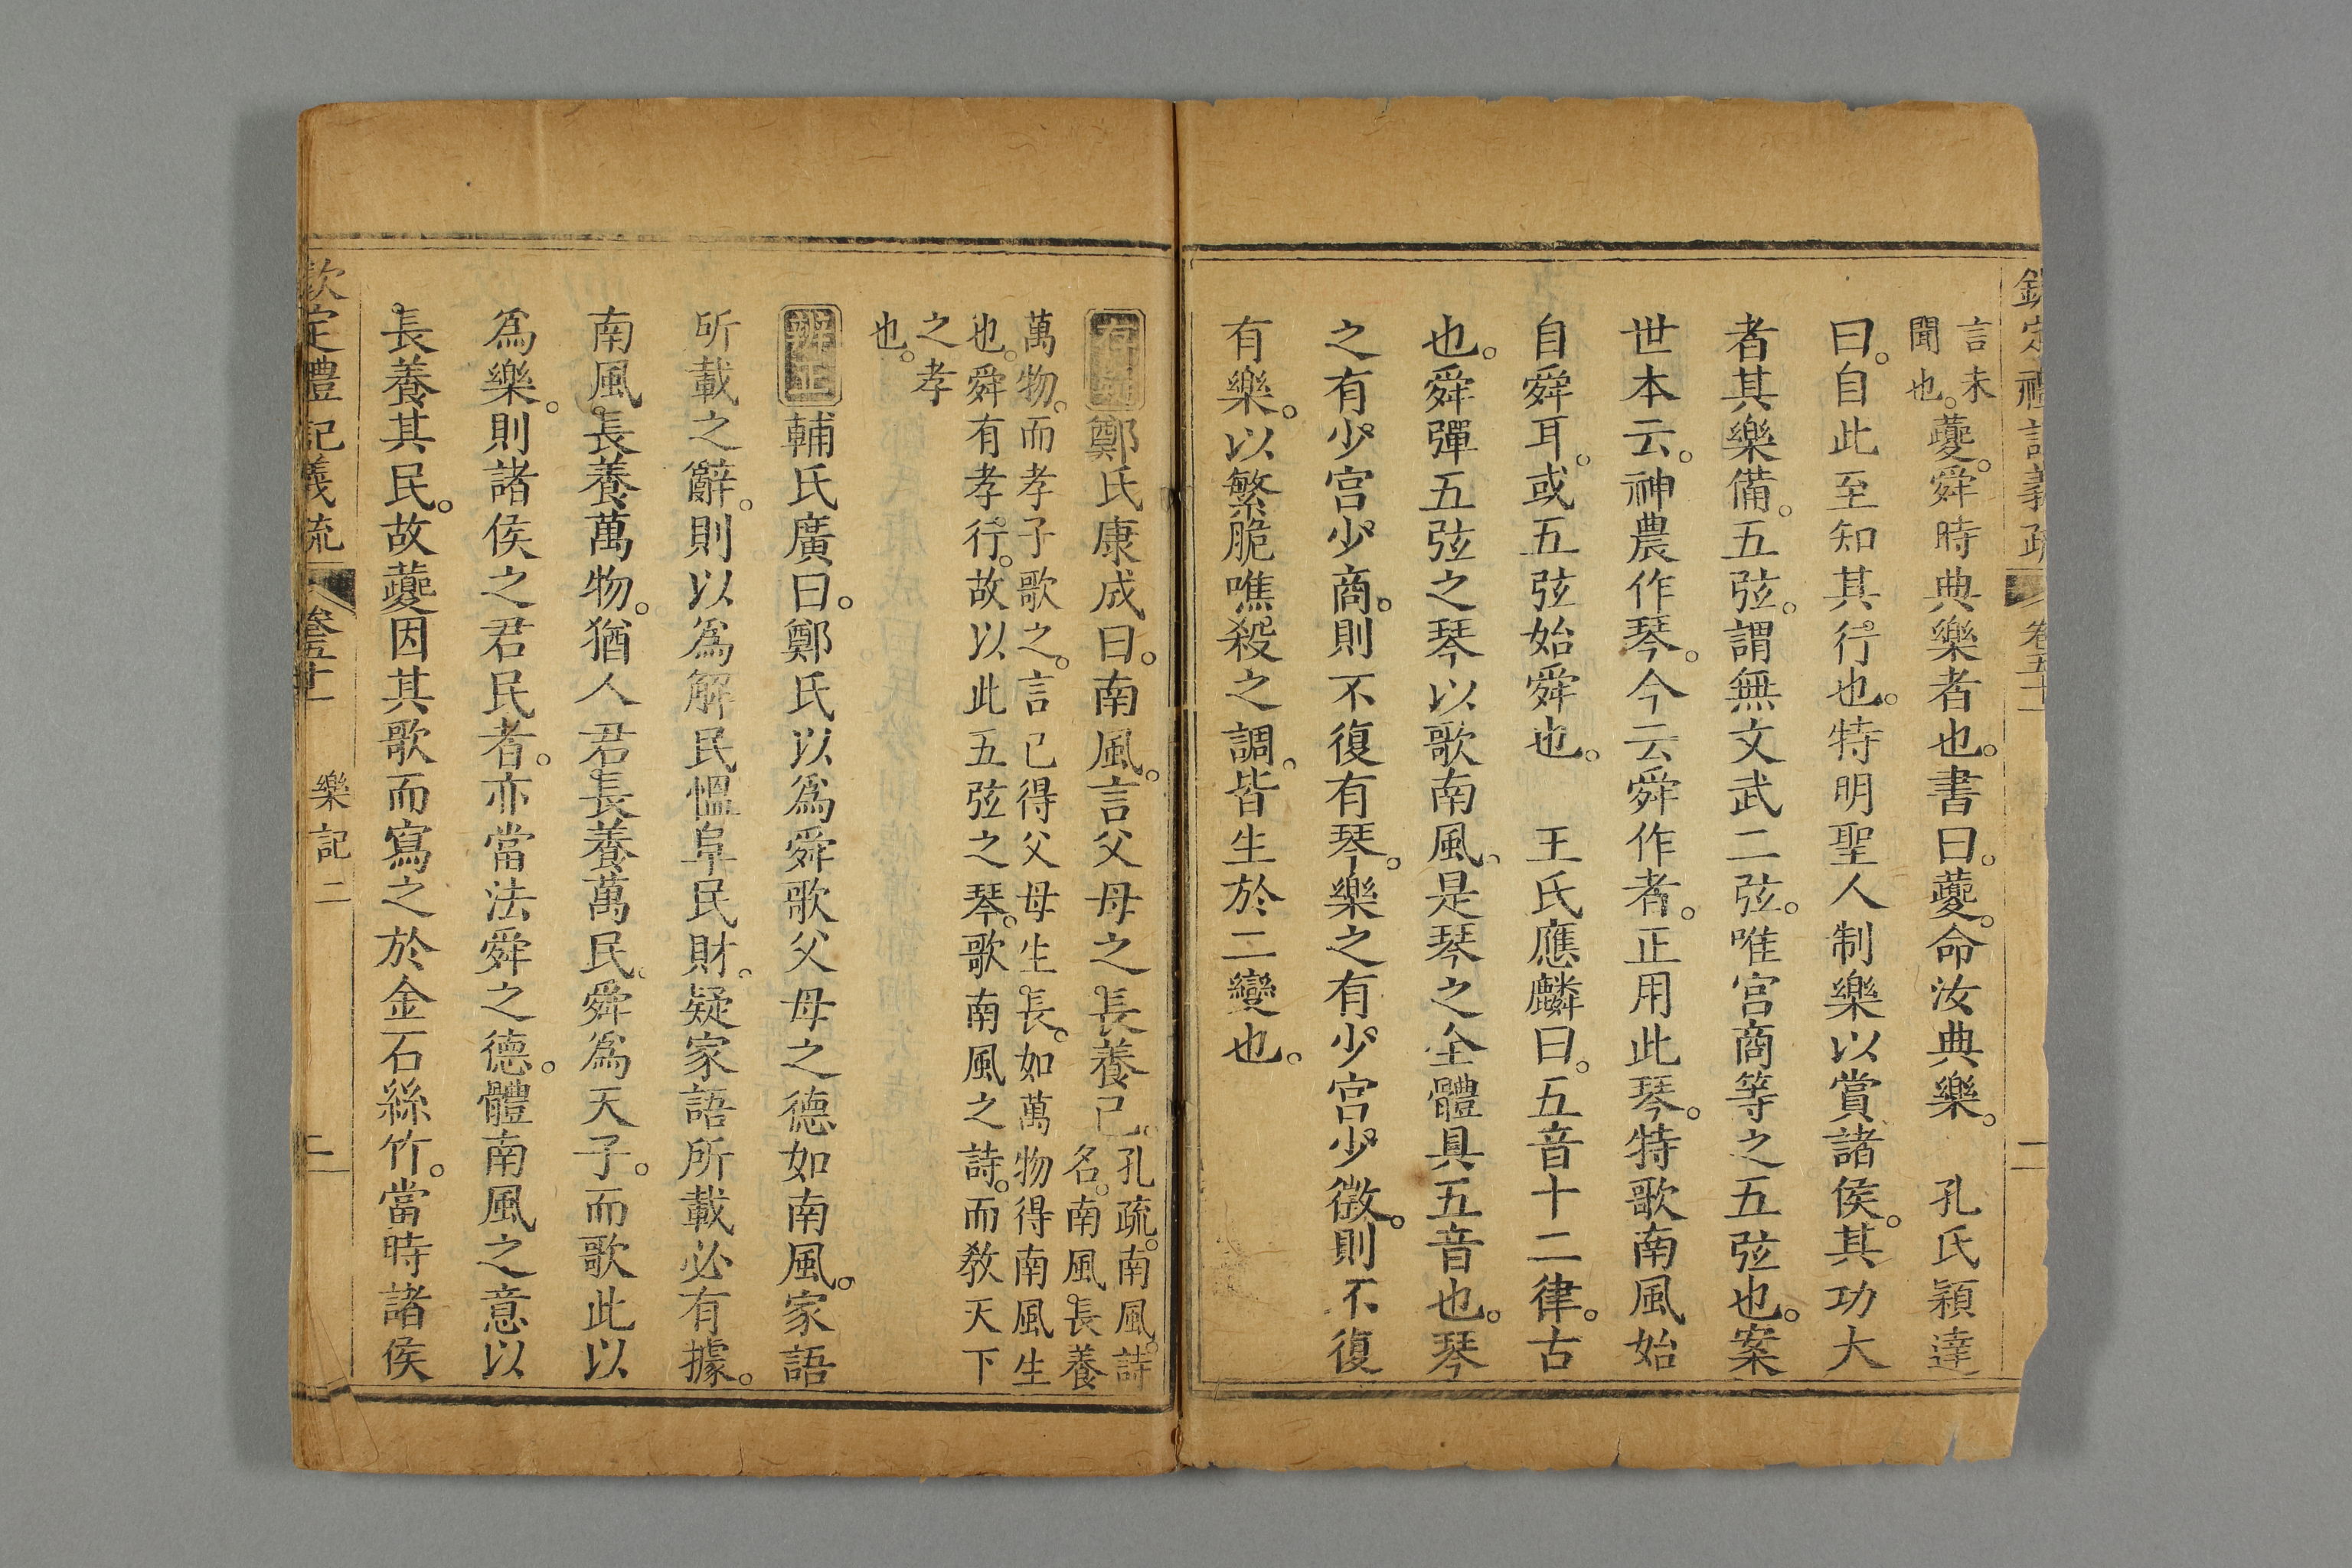 欽定禮記義疏 卷五十一
言未
聞也。
夔。舜時典樂者也。書曰。夔。命汝典樂。 孔氏穎達
曰。自此至知其行也。特明聖人制樂以賞諸侯。其功大
者其樂備。五弦。謂無文武二弦。唯宮商等之五弦也。案
世本云。神農作琴。今云舜作者。正用此琴。特歌南風始
自舜耳。或五弦始舜也。 王氏應麟曰。五音十二律。古
也。舜彈五弦之琴以歌南風。是琴之全體具五音也。琴
之有少宮少商。則不復有琴。樂之有少宮少徵。則不復
有樂。以繁脆噍殺之調。皆生於二變也。
鄭氏康成曰。南風。言父母之長養己。
孔疏。南風。詩
名。南風。長養
萬物。而孝子歌之。言已得父母生長。如萬物得南風生
也。舜有孝行。故以此五弦之琴。歌南風之詩。而敎天下
之孝
也。
辨正 輔氏廣曰。鄭氏以為舜歌父母之德如南風。家語
所載之辭。則以為解民慍阜民財。疑家語所載必有據。
南風長養萬物。猶人君長養萬民。舜為天子。而歌此以
為樂。則諸侯之君民者。亦當法舜之德。體南風之意以
長養其民。故夔因其歌而寫之於金石絲竹。當時諸侯
欽定禮記義疏 卷五十一 樂記 二